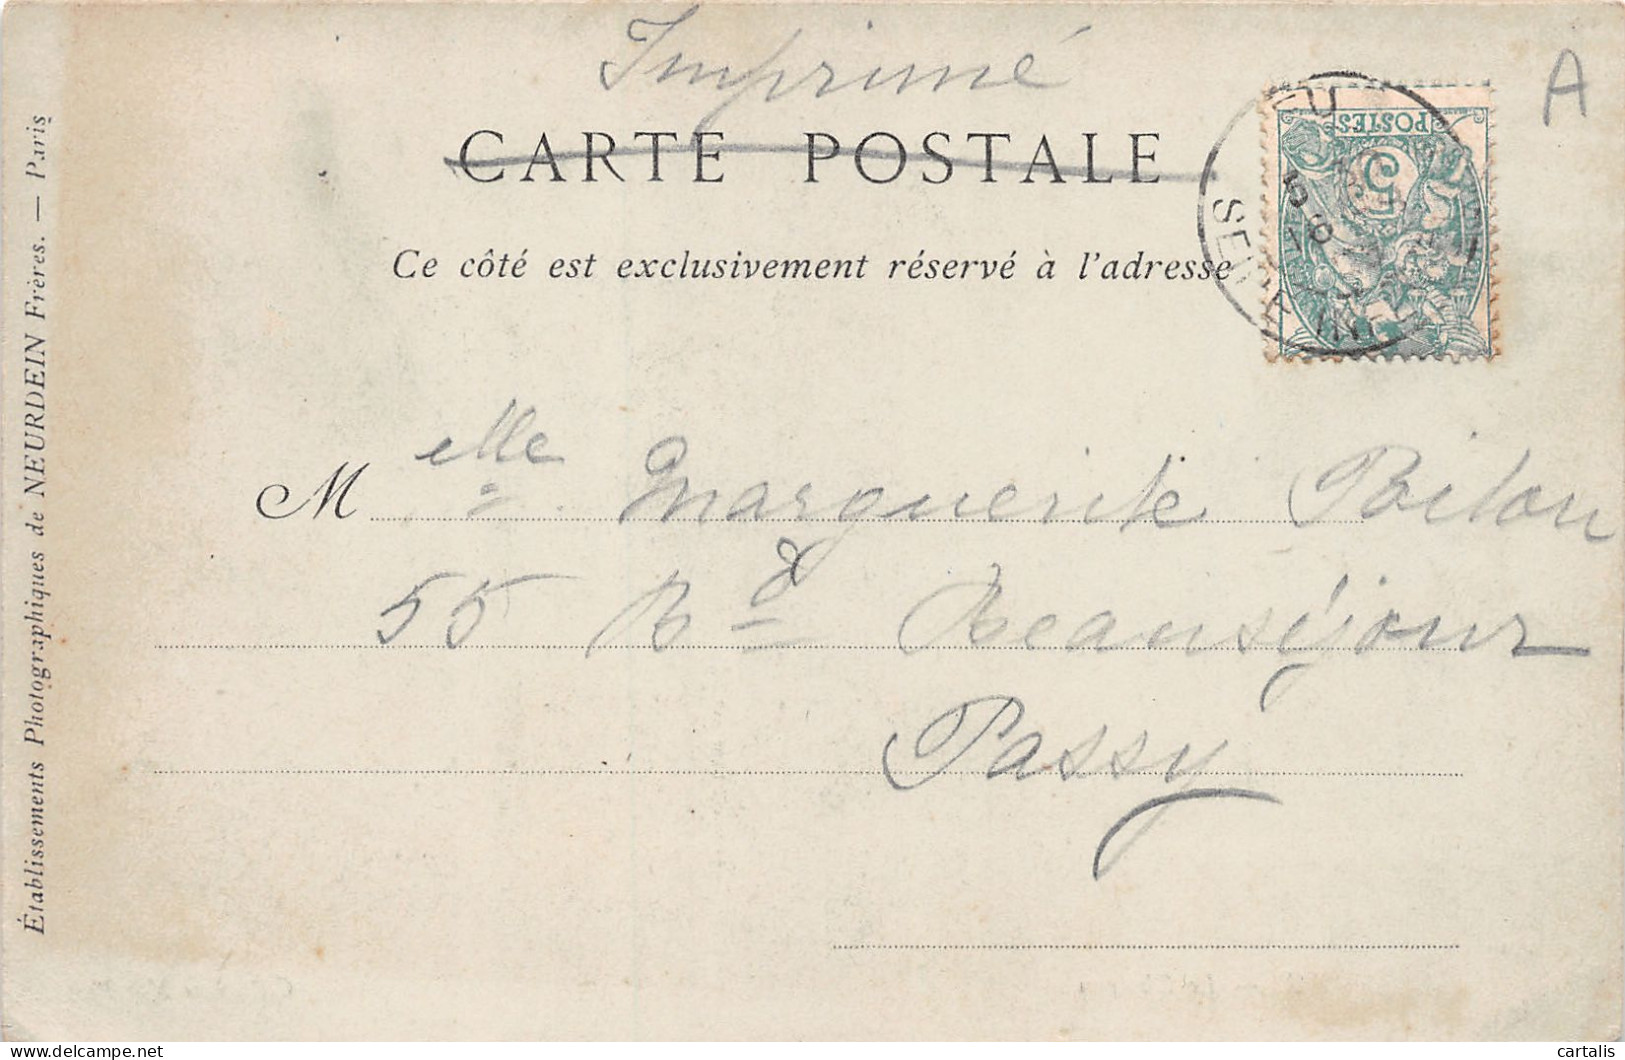 Imprimé
A
CARTE POSTALE
Ce côté est exclusivement réservé à l'adresse
EU
16
SEINE INF
POSTES
5
Melle Marguerite Boilou
55 Bd Beauséjour
Passy
Établissements Photographiques de NEURDEIN Frères. — Paris
delcampe.net
cartalis